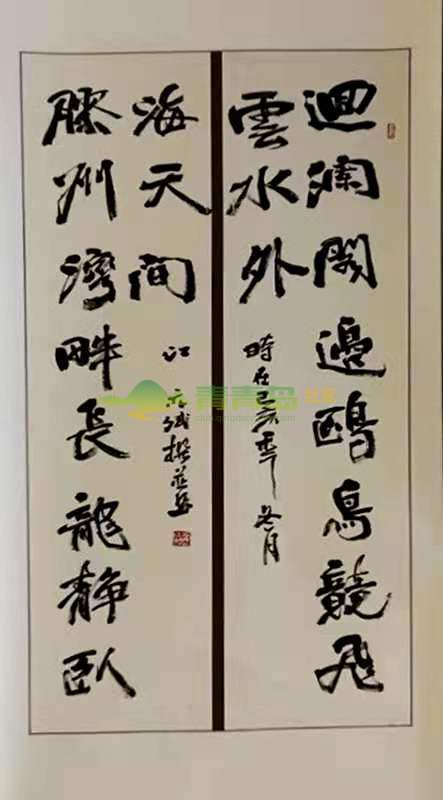 迴瀾閣邊鷗鳥競飛
雲水外
時在己亥年冬月
膠州灣畔長龍靜臥
海天間
江
撰並書
青青岛